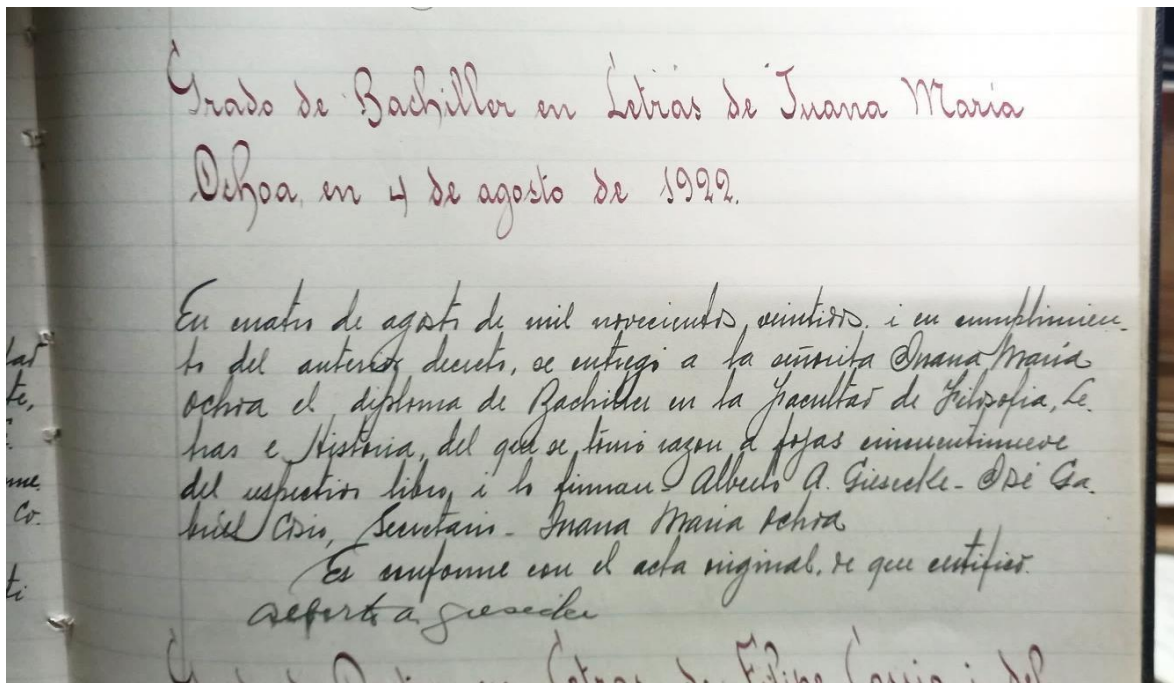 Grado de Bachiller en Letras de Juana María
Ochoa, en 4 de agosto de 1922.
En cuatro de agosto de mil novecientos veintidos. i en cumplimien-
to del anterior decreto, se entregó a la señorita Juana María
Ochoa el diploma de Bachiller en la Facultad de Filosofia, Le-
tras e Historia, del que se tomó razon a fojas cincuentinueve
del respectivo libro, i lo firman - Alberto A. Giesecke - José Ga-
briel Cosio, Secretario - Juana Maria Ochoa
Es conforme con el acta original, de que certifico.
Alberto A Giesecke
de Felipe